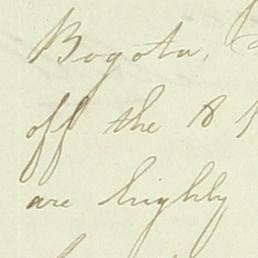 Bogota,
off the 18
are highly